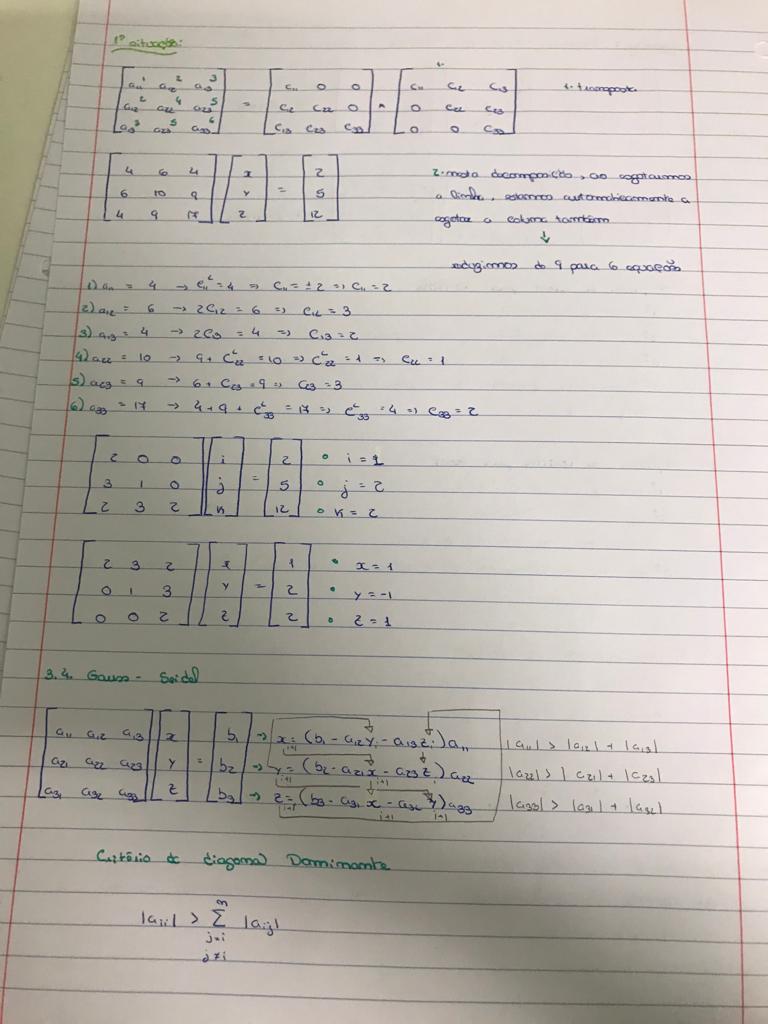 1ª situação:
t
[a₁₁¹ a₁₂² a₁₃³; a₁₂² a₂₂⁴ a₂₃⁵; a₁₃³ a₂₃⁵ a₃₃⁶] = [c₁₁ 0 0; c₁₂ c₂₂ 0; c₁₃ c₂₃ c₃₃] * [c₁₁ c₁₂ c₁₃; 0 c₂₂ c₂₃; 0 0 c₃₃] t-transposta
[4 6 4; 6 10 9; 4 9 17] [x; y; z] = [2; 5; 12]
2. nesta decomposição, ao esgotarmos
a linha, estamos automaticamente a
esgotar a coluna também
↓
reduzimos de 9 para 6 equação
1) a₁₁ = 4 → c₁₁² = 4 => c₁₁ = ±2 => c₁₁ = 2
2) a₁₂ = 6 → 2c₁₂ = 6 => c₁₂ = 3
3) a₁₃ = 4 → 2c₁₃ = 4 => c₁₃ = 2
4) a₂₂ = 10 → 9 + c₂₂² = 10 => c₂₂² = 1 => c₂₂ = 1
5) a₂₃ = 9 → 6 + c₂₃ = 9 => c₂₃ = 3
6) a₃₃ = 17 → 4 + 9 + c₃₃² = 17 => c₃₃² = 4 => c₃₃ = 2
[2 0 0; 3 1 0; 2 3 2] [i; j; k] = [2; 5; 12] • i = 1 • j = 2 • k = 2
[2 3 2; 0 1 3; 0 0 2] [x; y; z] = [1; 2; 2] • x = 1 • y = -1 • z = 1
3.4. Gauss - Seidel
[a₁₁ a₁₂ a₁₃; a₂₁ a₂₂ a₂₃; a₃₁ a₃₂ a₃₃] [x; y; z] = [b₁; b₂; b₃]
→ xᵢ₊₁ = (b₁ - a₁₂yᵢ - a₁₃zᵢ)a₁₁ |a₁₁| > |a₁₂| + |a₁₃|
→ yᵢ₊₁ = (b₂ - a₂₁xᵢ₊₁ - a₂₃zᵢ)a₂₂ |a₂₂| > |a₂₁| + |a₂₃|
→ zᵢ₊₁ = (b₃ - a₃₁xᵢ₊₁ - a₃₂yᵢ₊₁)a₃₃ |a₃₃| > |a₃₁| + |a₃₂|
Critério de diagonal Dominante
n
|aᵢᵢ| > Σ |aᵢⱼ|
j=i
j≠i